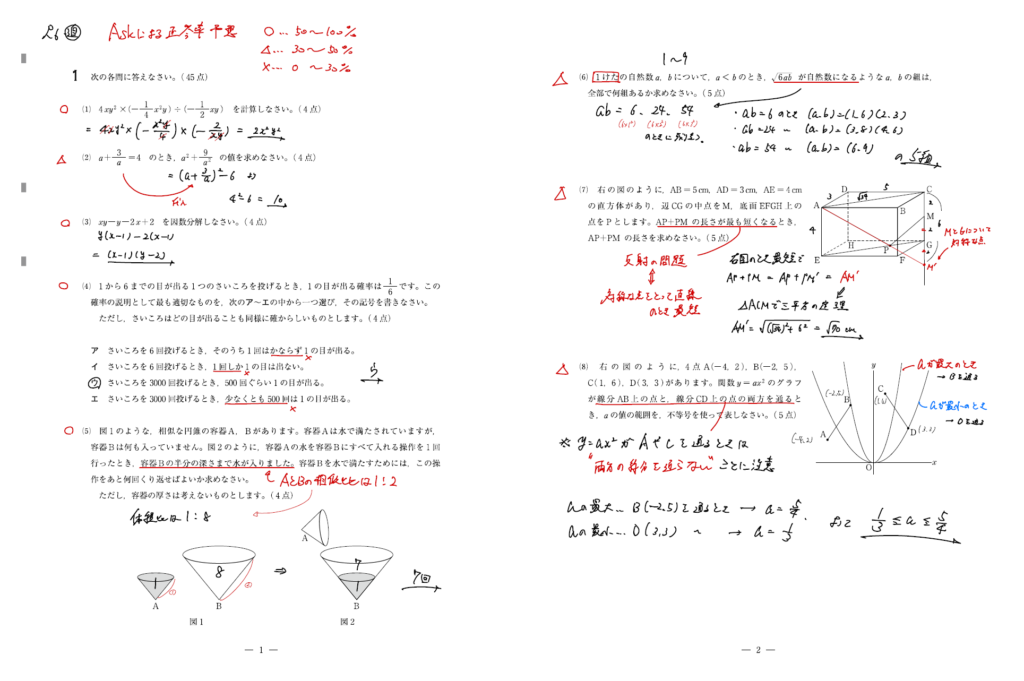 26 週 Askによる正答率予想
○… 50〜100%
△… 30〜50%
×… 0 〜30%
1 次の各問に答えなさい。(45点)
○ (1) 4xy² × (−1/4 x²y) ÷ (−1/2 xy) を計算しなさい。(4点)
= 4xy² × (−x²y/4) × (−2/xy) = 2x²y²
△ (2) a + 3/a = 4 のとき、a² + 9/a² の値を求めなさい。(4点)
= (a + 3/a)² − 6
4² − 6 = 10
○ (3) xy − y − 2x + 2 を因数分解しなさい。(4点)
y(x−1) − 2(x−1)
= (x−1)(y−2)
○ (4) 1から6までの目が出る1つのさいころを投げるとき、1の目が出る確率は 1/6 です。この
確率の説明として最も適切なものを、次のア〜エの中から一つ選び、その記号を書きなさい。
ただし、さいころはどの目が出ることも同様に確からしいものとします。(4点)
ア さいころを6回投げるとき、そのうち1回はかならず1の目が出る。
×
イ さいころを6回投げるとき、1回しか1の目は出ない。
×
ウ さいころを3000回投げるとき、500回ぐらい1の目が出る。
ウ
エ さいころを3000回投げるとき、少なくとも500回は1の目が出る。
×
○ (5) 図1のような、相似な円錐の容器A、Bがあります。容器Aは水で満たされていますが、
容器Bは何も入っていません。図2のように、容器Aの水を容器Bにすべて入れる操作を1回
行ったとき、容器Bの半分の深さまで水が入りました。容器Bを水で満たすためには、この操
作をあと何回くり返せばよいか求めなさい。
AとBの相似比は1:2
ただし、容器の厚さは考えないものとします。(4点)
体積比は1:8
A
1 ① 8 ② ⇒ 7 1
7回
A B B
図1 図2
— 1 —
1〜9
△ (6) 1けたの自然数a, bについて、a < bのとき、√6ab が自然数になるようなa, bの組は、
全部で何組あるか求めなさい。(5点)
ab = 6、24、54
(6×1²) (6×2²) (6×3²)
・ab=6 のとき (a.b)=(1.6)(2.3)
・ab=24 〃 (a.b)=(3.8)(4.6)
・ab=54 〃 (a.b)=(6.9)
の5組
△ (7) 右の図のように、AB = 5cm、AD = 3cm、AE = 4cm
の直方体があり、辺CGの中点をM、底面EFGH上の
点をPとします。AP+PMの長さが最も短くなるとき、
AP+PM の長さを求めなさい。(5点)
D 5 C
3 √34 2
A B M
4 2 6
H G
P 2
E F M'
MとGについて
対称な点
反射の問題
対称な点をとって直線
のとき最短
右図のとき最短で
AP+PM = AP+PM' = AM'
△ACM'で三平方の定理
AM' = √(√34)²+6² = √70 cm
△ (8) 右の図のように、4点A(−4, 2)、B(−2, 5)、
C(1, 6)、D(3, 3)があります。関数 y = ax² のグラフ
が線分AB上の点と、線分CD上の点の両方を通ると
き、aの値の範囲を、不等号を使って表しなさい。(5点)
y
aが最大のとき
→ Bを通る
aが最小のとき
→ Dを通る
(-2,5) B C (1,6)
(-4,2) A D (3,3)
O x
※ y=ax²がAやCを通るときは
"両方の線分を通らない" ことに注意
aの最大… B(-2.5)を通るとき → a = 5/4
aの最小… D(3,3) 〃 → a = 1/3
よって 1/3 ≦ a ≦ 5/4
— 2 —